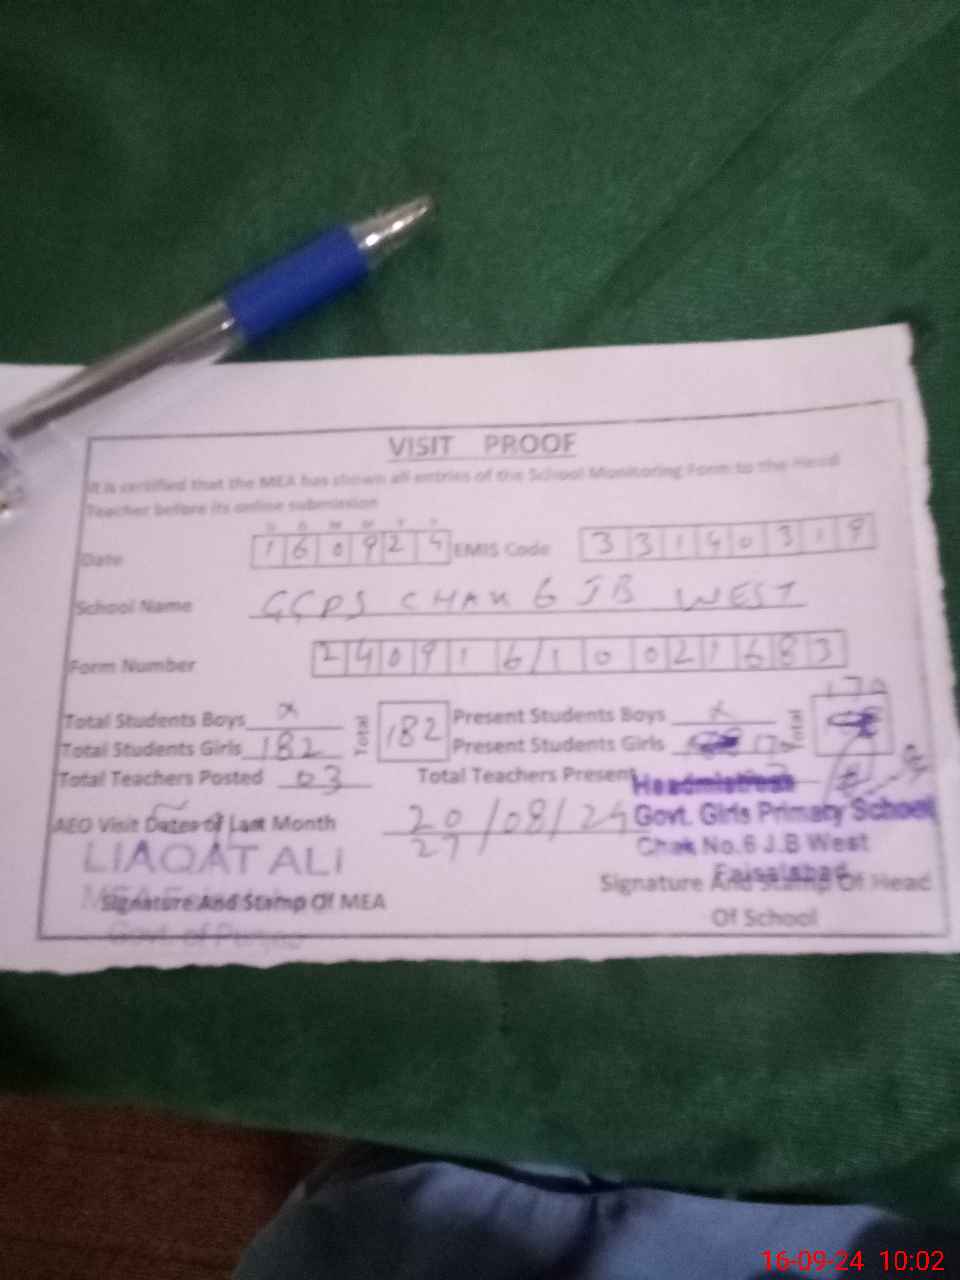 VISIT PROOF
It is certified that the MEA has shown all entries of the School Monitoring Form to the Head
Teacher before its online submission
D D M M Y Y
Date 1 6 0 9 2 4 EMIS Code 3 3 1 4 0 3 1 9
School Name GGPS CHAK 6 JB WEST
Form Number 2 4 0 9 1 6 / 1 0 0 2 1 6 8 3
Total Students Boys x Total 182 Present Students Boys x Total 170
Total Students Girls 182 Present Students Girls
Total Teachers Posted 03 Total Teachers Present
AEO Visit Dates of Last Month 20/08/24
27
LIAQAT ALI
MEA
Signature And Stamp Of MEA
Govt. of
Headmistress
Govt. Girls Primary School
Chak No.6 J.B West
Faisalabad
Signature And Stamp Of Head
Of School
16-09-24 10:02